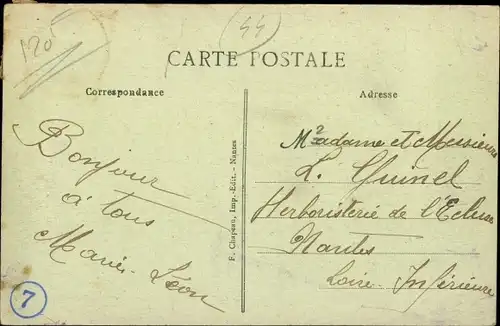 120
44
CARTE POSTALE
Correspondance
Adresse
Bonjour
à tous
Marie-Léon
F. Chapeau, Imp.-Edit. - Nantes
Madame et Messieurs
L. Guinel
Herboristerie de l'Ecluse
Nantes
Loire Inférieure
7